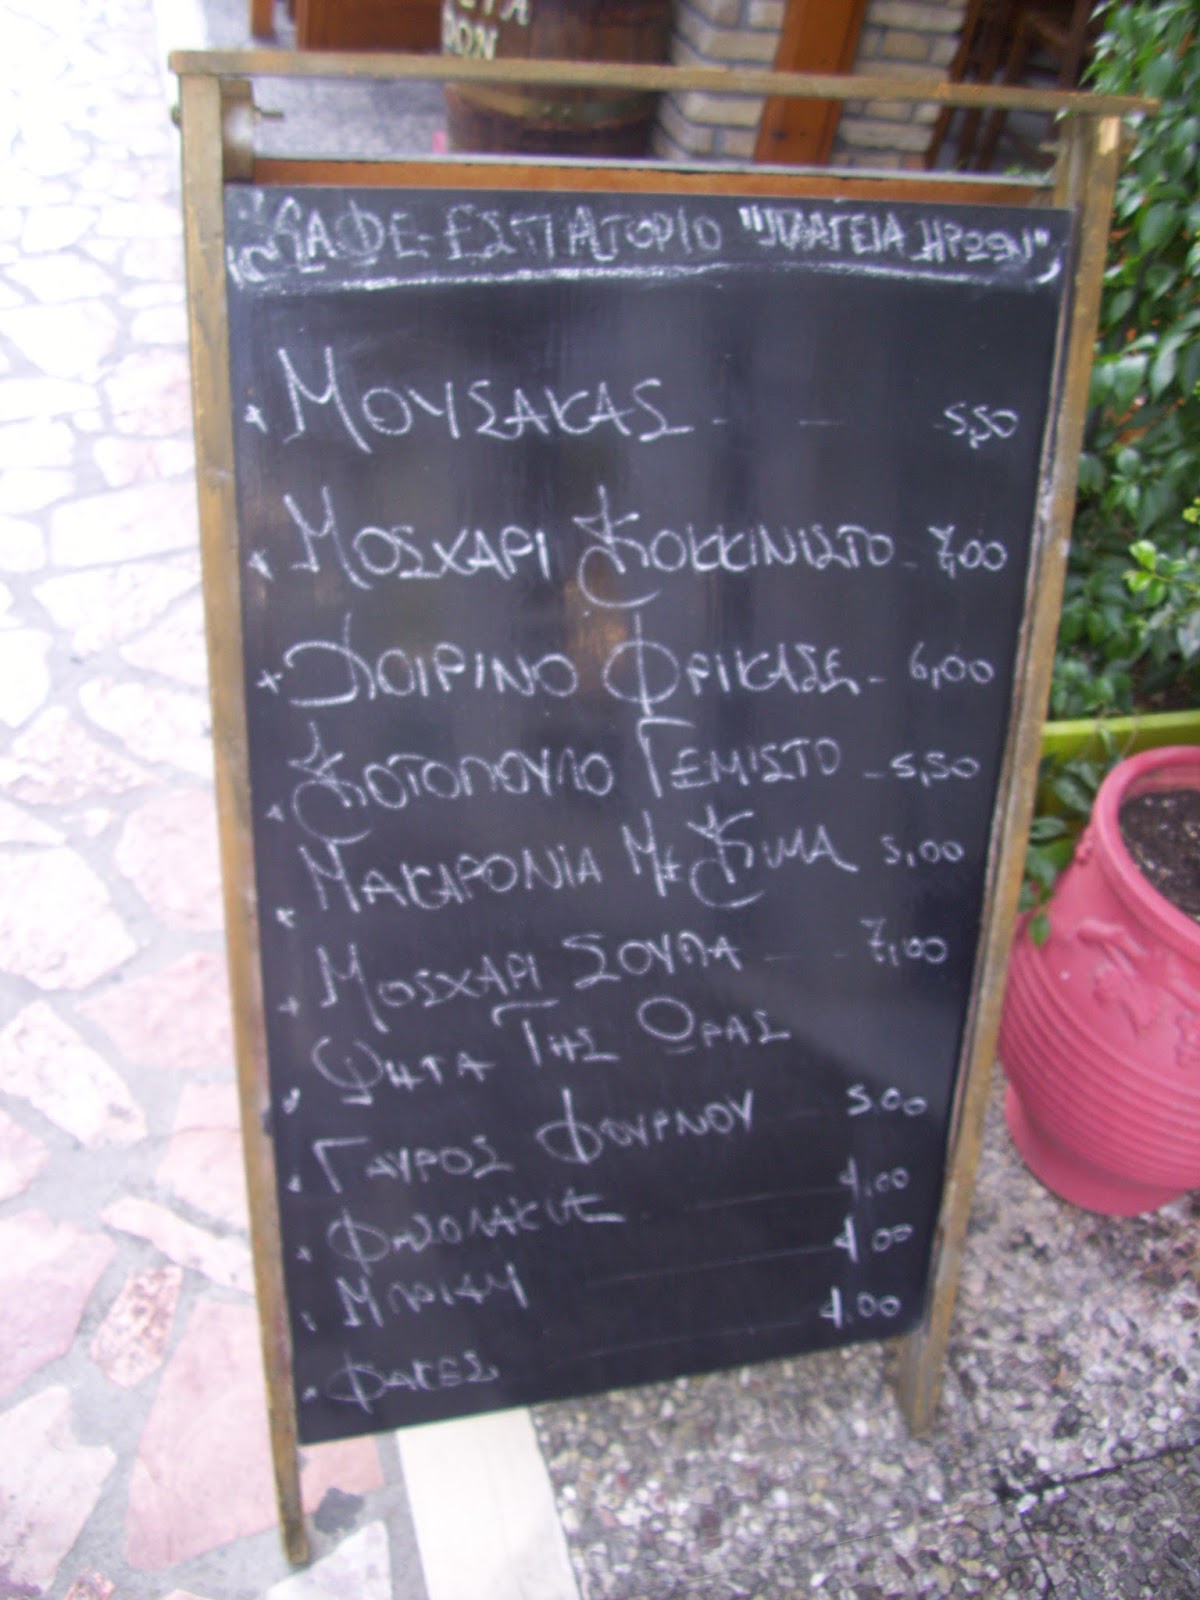 ΚΑΦΕ-ΕΣΤΙΑΤΟΡΙΟ "ΠΛΑΤΕΙΑ ΗΡΩΩΝ"
ΜΟΥΣΑΚΑΣ - - - 5,50
ΜΟΣΧΑΡΙ ΚΟΚΚΙΝΙΣΤΟ - 7,00
ΧΟΙΡΙΝΟ ΦΡΙΚΑΣΕ - 6,00
ΚΟΤΟΠΟΥΛΟ ΓΕΜΙΣΤΟ - 5,50
ΜΑΚΑΡΟΝΙΑ ΜΕ ΚΙΜΑ 5,00
ΜΟΣΧΑΡΙ ΣΟΥΠΑ - - 7,00
ΨΗΤΑ ΤΗΣ ΩΡΑΣ
ΓΑΥΡΟΣ ΦΟΥΡΝΟΥ 5.00
ΦΑΣΟΛΑΚΙΑ 4.00
ΜΠΡΙΑΜ 4.00
ΦΑΚΕΣ 4.00